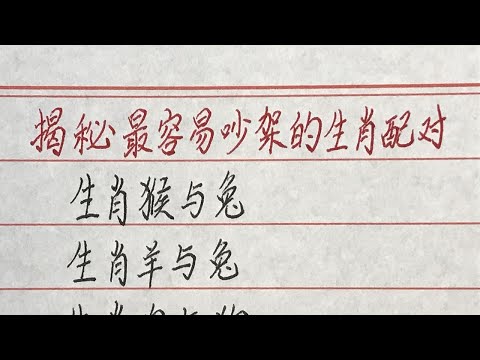 揭秘最容易吵架的生肖配对
生肖猴与兔
生肖羊与兔